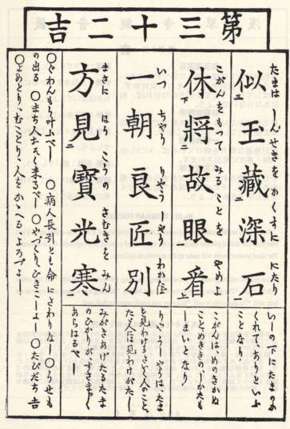 第三十二吉
似玉藏深石
たまは しんせきを かくすに にたり
いしの下にたまのか
くれてありといふ
ことなり
休將故眼看
こがんをもつて みることを やめよ
こがんはめのきかぬ
ことめききのしかたも
しまいとなり
一朝良匠別
いつ ちやう りやうしやう
りやうしやうはたま
を見わけるさいく人のこと、
たゞ人には見わけがたし
方見寶光寒
まさに はう こうの さむきを みん
みがきあげたるたま
のひかりがすさまじく
あらはるべし
○ぐわんもう叶ふべし ○病人長引とも命にさわりなし ○うせも
の出る ○まち人おそく来るべし ○やづくり、ひきこしよし ○たびだち吉
○よめとり、むことり、人をかゝへる、よろづよし